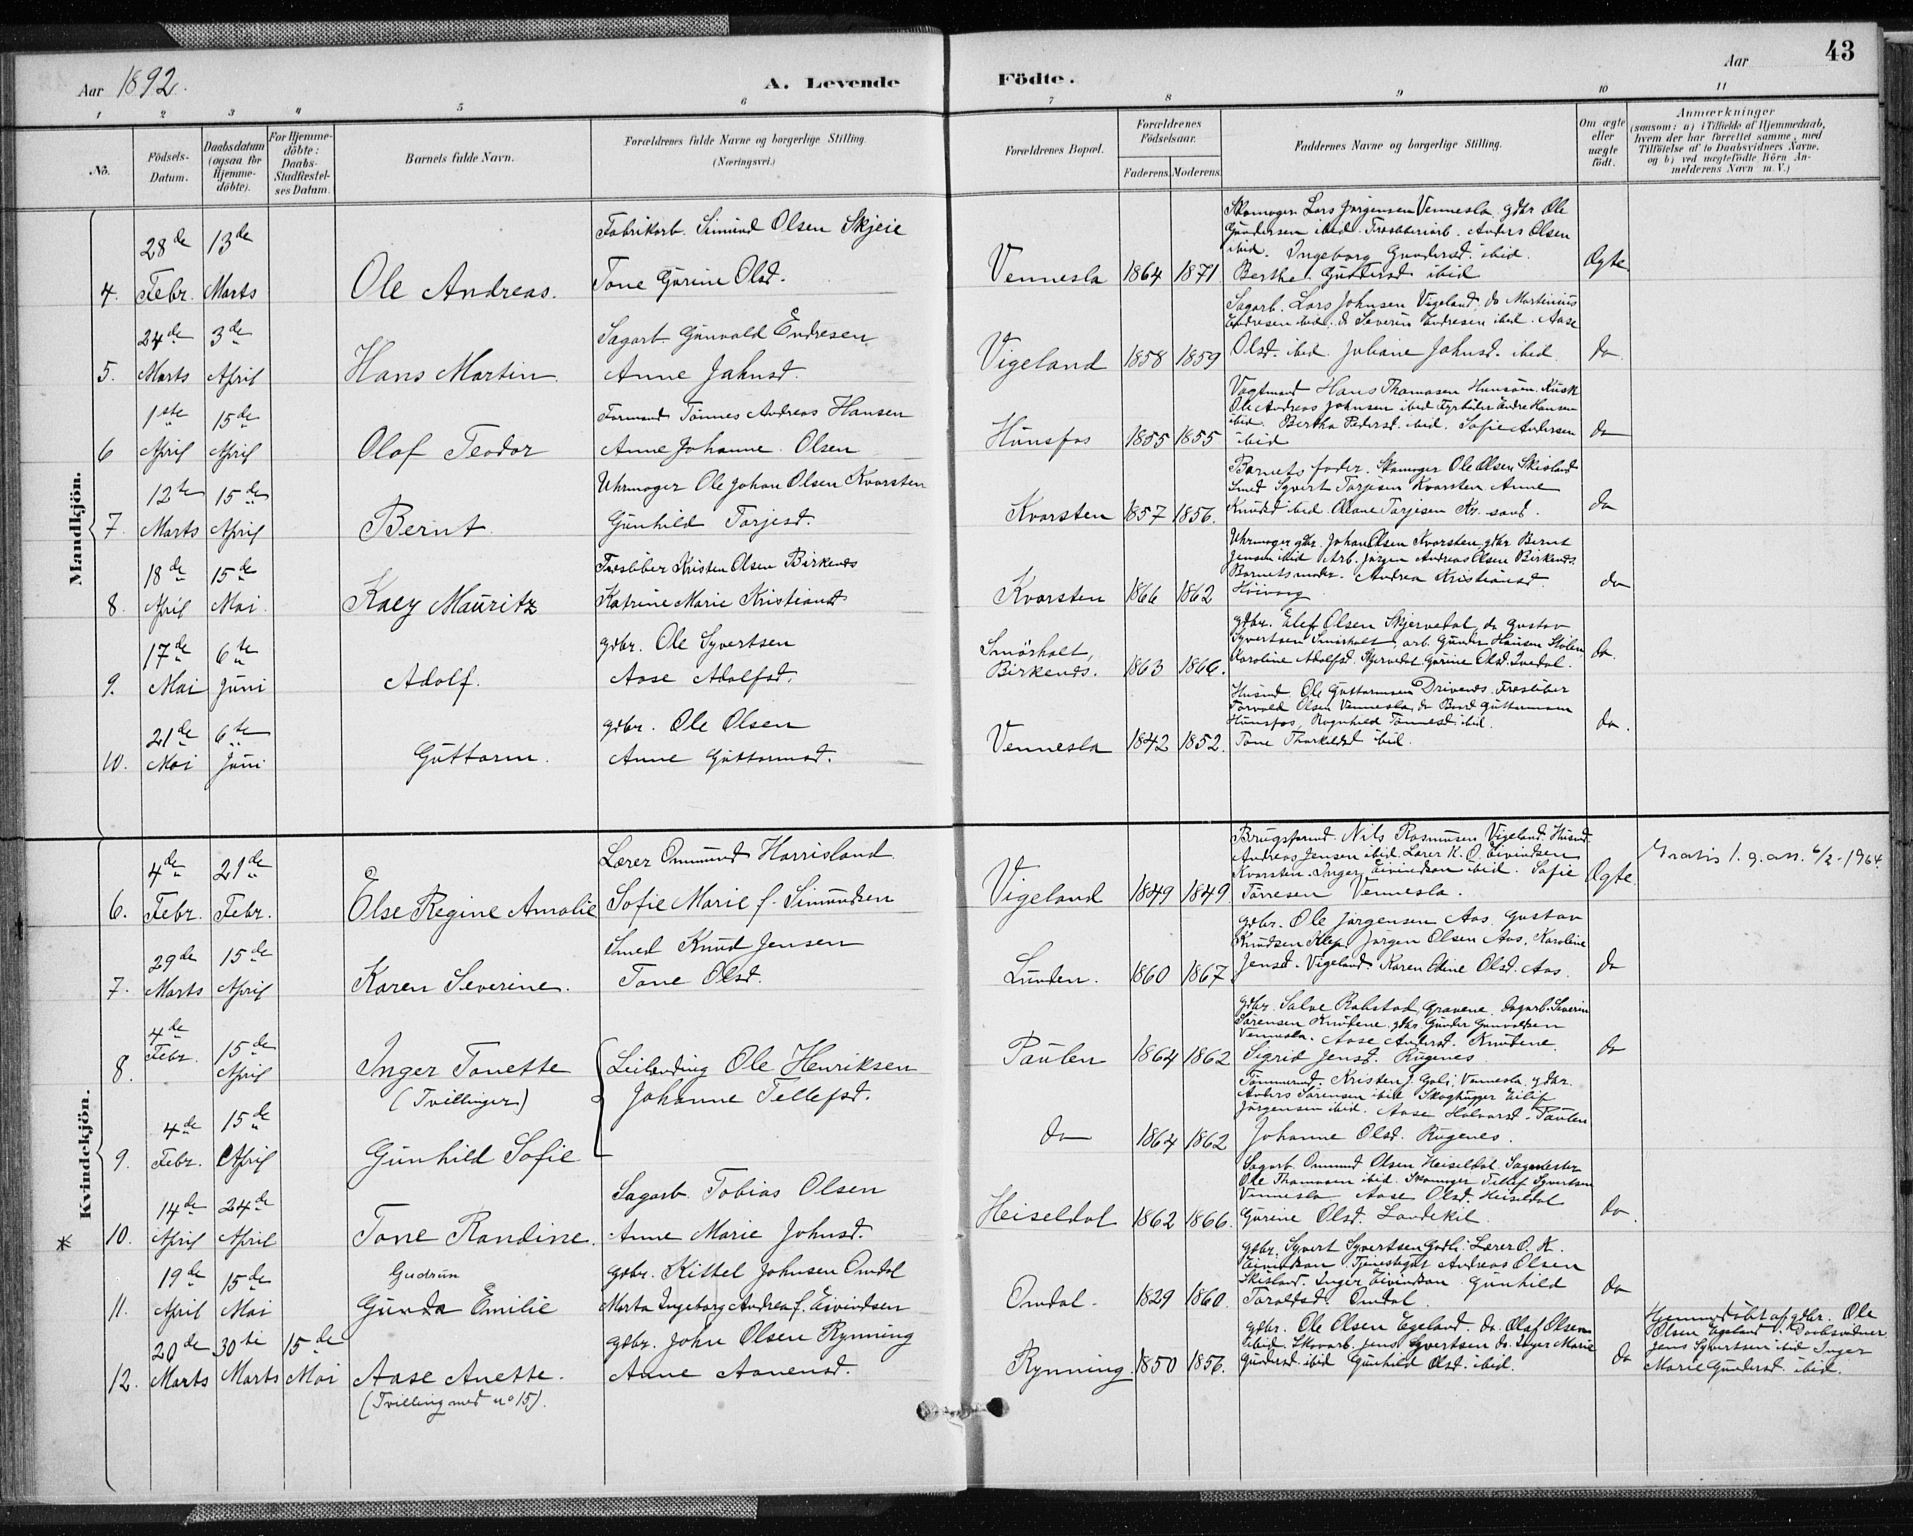 43
Aar 1892.
A. Levende
Födte.
Aar
1 2 3 4 5 6 7 8 9 10 11
No.
Födsels-Datum.
Daabsdatum (ogsaa for Hjemme-döbte).
For Hjemme-döbte: Daabs-Stadfæstel-ses Datum.
Barnets fulde Navn.
Forældrenes fulde Navne og borgerlige Stilling. (Næringsvei.)
Forældrenes Bopæl.
Forældrenes Födselsaar.
Faderens. Moderens.
Faddernes Navne og borgerlige Stilling.
Om ægte eller uægte födt.
Anmærkninger
(saasom: a) i Tilfælde af Hjemmedaab,
hvem der har forrettet samme, med
Tilföielse af to Daabsvidners Navne,
og b) ved uægtefödte Börn An-
melderens Navn m. V.)
Mandkjön.
4. 28de Febr. 13de Marts Ole Andreas.
Fabrikarb. Simund Olsen Skjeie
Tone Gurine Olsd.
Vennesla 1864 1871
Skomager Lars Jørgensen Vennesla, gdbr Ole
Gundersen ibid. Træsliberiarb. Anders Olsen
ibid. Ingeborg Gundersd. ibid.
Berthe Guttersd ibid
Ægte
5. 24de Marts 3de April Hans Martin.
Sagarb. Gunvald Endresen
Anne Jahnsd.
Vigeland 1858 1859
Sagarb. Lars Johnsen Vigeland, do Martinius
Endresen ibid, do Severin Endresen ibid. Aase
Olsd. ibid. Juliane Jahnsd. ibid.
do.
6 1ste April 15de April Olaf Teodor
Formand Tønnes Andreas Hansen
Anne Johanne Olsen
Hunsfos 1855 1855
Vagtmand Hans Thomasen Hunsøen. Kusk
Ole Andreas Johnsen ibid Fyrbøder Endre Hansen
ibid. Bertha Pedersd. ibid. Sofie Andersen
ibid
do
7. 12te Marts 15de April Bernt.
Uhrmager Ole Johan Olsen Kvarsten
Gunhild Torjesd.
Kvarsten 1857 1856.
Barnets fader. Skomager Ole Olsen Skisland
Smed Syvert Torjesen Kvarsten Anne
Knudsd ibid. Olane Torjesen Kr. sand.
do
8. 18de April 15de Mai. Kaey Mauritz
Træsliber Kristen Olsen Birkenæs
Katrine Marie Kristiansd
Kvarsten 1866 1862
Uhrmager gdbr. Johan Olsen Kvarsten, gdbr Bernt
Jensen ibid Arb. Jørgen Andreas Olsen Birkenæs.
Barnets moder. Andrea Kristiansd
Høivaag
do
9. 17de Mai 6te Juni Adolf.
gdbr. Ole Syvertsen
Aase Adolfsd.
Smørholt, Birkenæs. 1863 1866.
gdbr. Elef Olsen Skjervedal, do Gustav
Syvertsen Smørholt, arb. Gunder Hansen Stolen
Karoline Adolfsd. Skjervedal Gurine Olsd.
do.
10. 21de Mai 6te Juni Guttorm.
gdbr. Ole Olsen
Anne Guttormsd.
Vennesla 1842 1852.
Husmd. Ole Guttormsen Drivenæs. Træsliber
Torvald Olsen Vennesla, do Bård Guttormsen
Hunsfos, Ragnhild Tønnesd ibid.
Tone Thorkildsd ibid.
do.
Kvindekjön.
6. 4de Febr. 21de Febr. Else Regine Amalie
Lærer Ommund Harrisland
Sofie Marie f. Simundsen
Vigeland 1849 1849
Brugsformd. Nils Rasmussen Vigeland. Husmd.
Andreas Jensen ibid. Lærer K. O. Eivindsen
Kvarsten. Inger Eivindsen ibid. Sofie
Torresen Vennesla.
Ægte.
Gratis 1. g. att. 6/2-1964.
7. 29de Marts 15de April Karen Severine.
Smed Knud Jensen
Tone Olsd.
Lunden. 1860 1867
gdbr. Ole Jørgensen Aas. Gustav
Knudsen Klep, Jørgen Olsen Aas, Karoline
Jensd. Vigeland. Karen Oline Olsd. Aas.
do
8. 4de Febr. 15de April Inger Tonette
(Tvillinger)
Leilending Ole Henriksen
Johanne Tellefsd.
Paulen 1864 1862
gdbr. Salve Robstad, Gravene. Dagarb. Severin
Sørensen Knutene, gdbr Gunder Gunvaldsen
Vennesla. Aase Andersd. Knutene.
Sigrid Jensd. Rugenes
do
9. 4de Febr. 15de April Gunhild Sofie
do 1864 1862
Tømmermd. Kristen J. Gali, Vennesla, gdbr.
Anders Sørensen ibid Skoghugger Eilif
Jørgensen ibid. Aase Halvorsd. Paulen
Johanne Olsd. Rugenes.
10. 14de April 24de April Tone Randine.
Sagarb. Tobias Olsen
Anne Marie Johnsd.
Heiseldal 1862 1866.
Sagarb. Ommund Olsen Heiseldal. Sagmester
Ole Thomasen ibid. Skomager Tellef Syvertsen
Vennesla. Aase Olsd. Heiseldal
Gurine Olsd. Landekil.
do.
11. 19de April 15de Mai Gudrun
Gunda Emilie
gdbr. Kittel Johnsen Omdal
Marta Ingeborg Andrea f. Eivindsen
Omdal. 1829 1860.
gdbr. Syvert Syvertsen Gali. Lærer O. K.
Eivindsen Tjenestegut Andreas Olsen
Skisland. Inger Eivindsen. Gunhild
Taraldsd. Omdal.
do
12. 20de Marts 30te Marts 15de Mai Aase Anette.
(Tvilling med no 15).
gdbr. John Olsen Rynning
Anne Aanensd.
Rynning. 1850 1856.
gdbr. Ole Olsen Egeland. do. Olaf Olsen
ibid. Skovarb. Jens Syvertsen do. Inger Marie
Gundersd. ibid Gunhild Olsd. ibid.
do
Hjemmedöbt af gdbr. Ole
Olsen Egeland. Daabsvidner
Jens Syvertsen ibid Inger
Marie Gundersd. ibid.